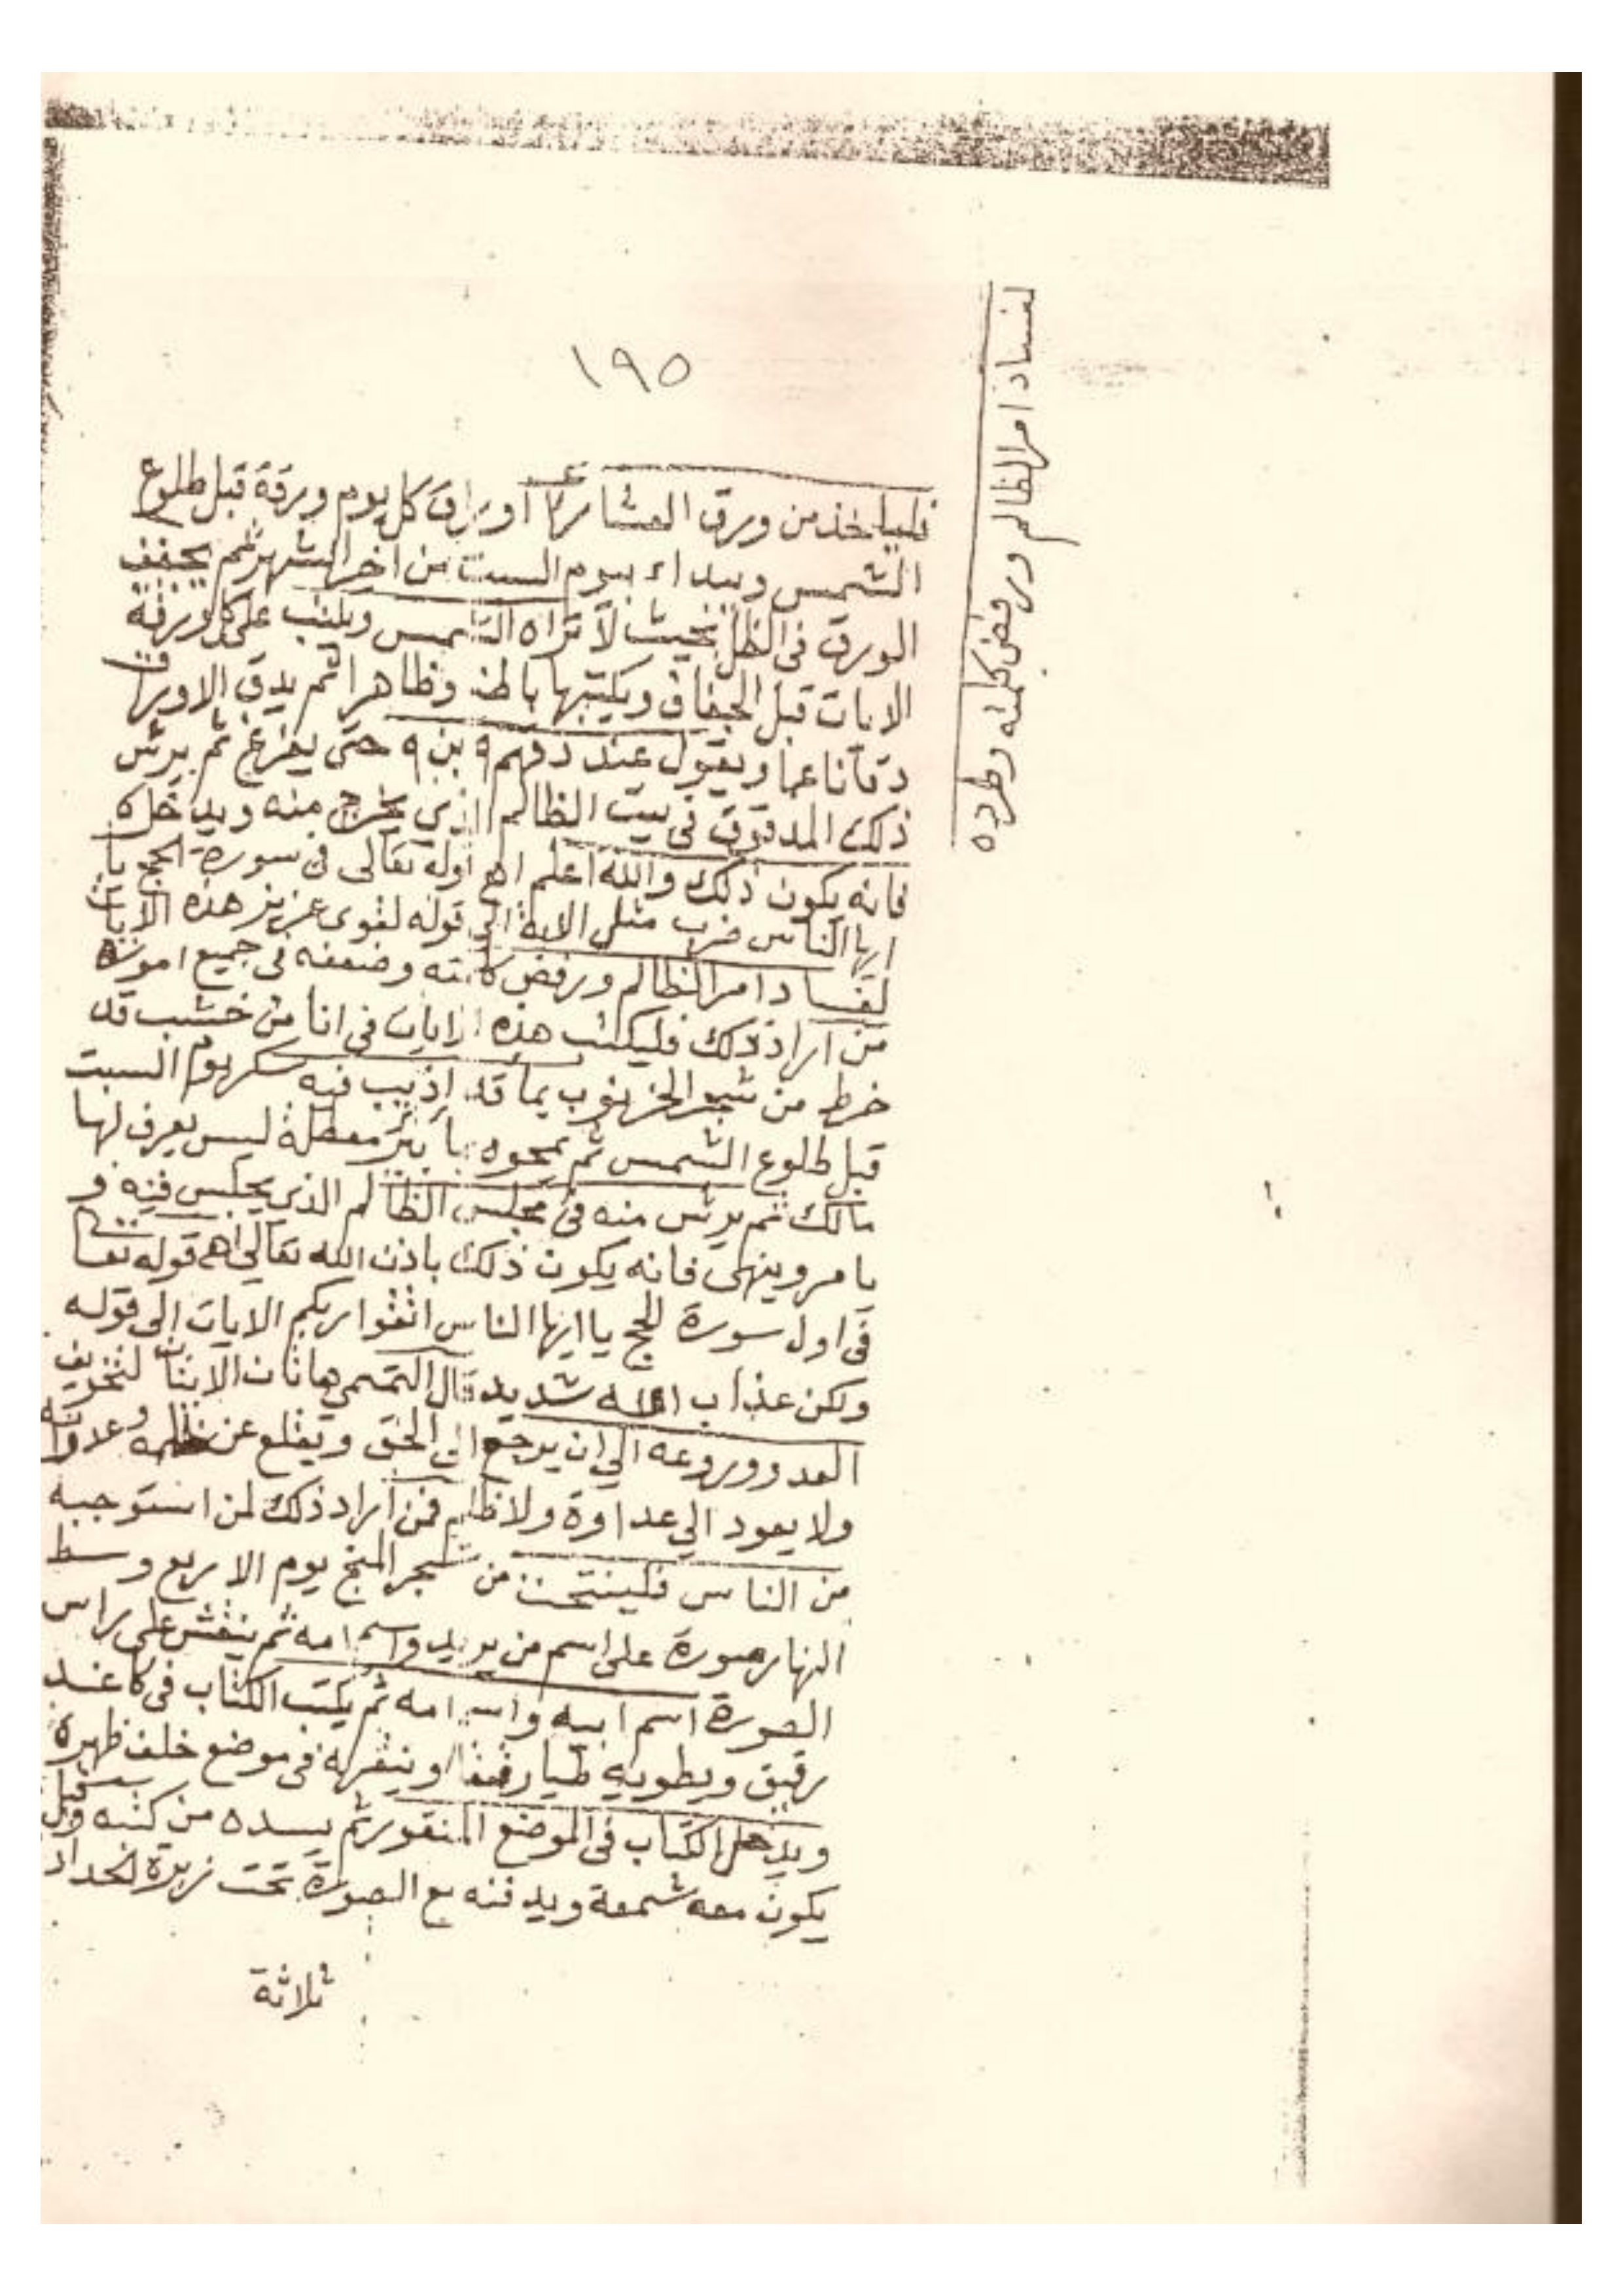 ١٩٥
لفساد امر الظالم ورفض كلمته وطرده
فلياخذ من ورق العشار اوراق كل يوم ورقة قبل طلوع
الشمس ويبداء بيوم السبت من اخر الشهر ثم يجفف
الورق فى الظل بحيث لا تراه الشمس ويكتب على كل ورقة
الايات قبل الجفاف ويكتبها باطنا وظاهرا ثم يدق الاوراق
دقا ناعما ويقول عند دقهم ٩ بن ٩ حتى يفرغ ثم يرش
ذلك المدقوق فى بيت الظالم الذي يخرج منه ويدخله
فانه يكون ذلك والله اعلم اهـ قوله تعالى فى سورة الحج يا
ايها الناس ضرب مثل الاية الى قوله لقوى عزيز هذه الايات
لفساد امر الظالم ورفض كلمته وضعفه فى جميع اموره
من اراد ذلك فليكتب هذه الايات فى انا من خشب قد
خرط من شجر الخرنوب بما قد اذيب فيه سكر يوم السبت
قبل طلوع الشمس ثم يمحوه بما بئر معطلة ليس يعرف لها
مالك ثم يرش منه فى مجلس الظالم الذى يجلس فيه و
يامر وينهى فانه يكون ذلك باذن الله تعالى اهـ قوله تعا
فى اول سورة الحج يا ايها الناس اتقوا ربكم الايات الى قوله
ولكن عذاب الله شديد قال التميمي هاتان الايتان لتخويف
العدو وروعه الي ان يرجع الى الحق ويقلع عن ظلمه وعداوته
ولا يعود الي عداوة ولا ظلم فمن اراد ذلك لمن استوجبه
من الناس فلينتحت من شجر المنج يوم الاربع وسط
النهار صورة على اسم من يريد واسم امه ثم ينقش على راس
الصورة اسم ابيه واسم امه ثم يكتب الكتاب فى كاغد
رقيق ويطويه طيا رفيقا وينقره فى موضع خلف ظهره
ويدخل الكتاب فى الموضع المنقور ثم يسده من كتبه وقبل
يكون معه شمعة ويدفنه مع الصورة تحت زبرة الحداد
ثلاثة